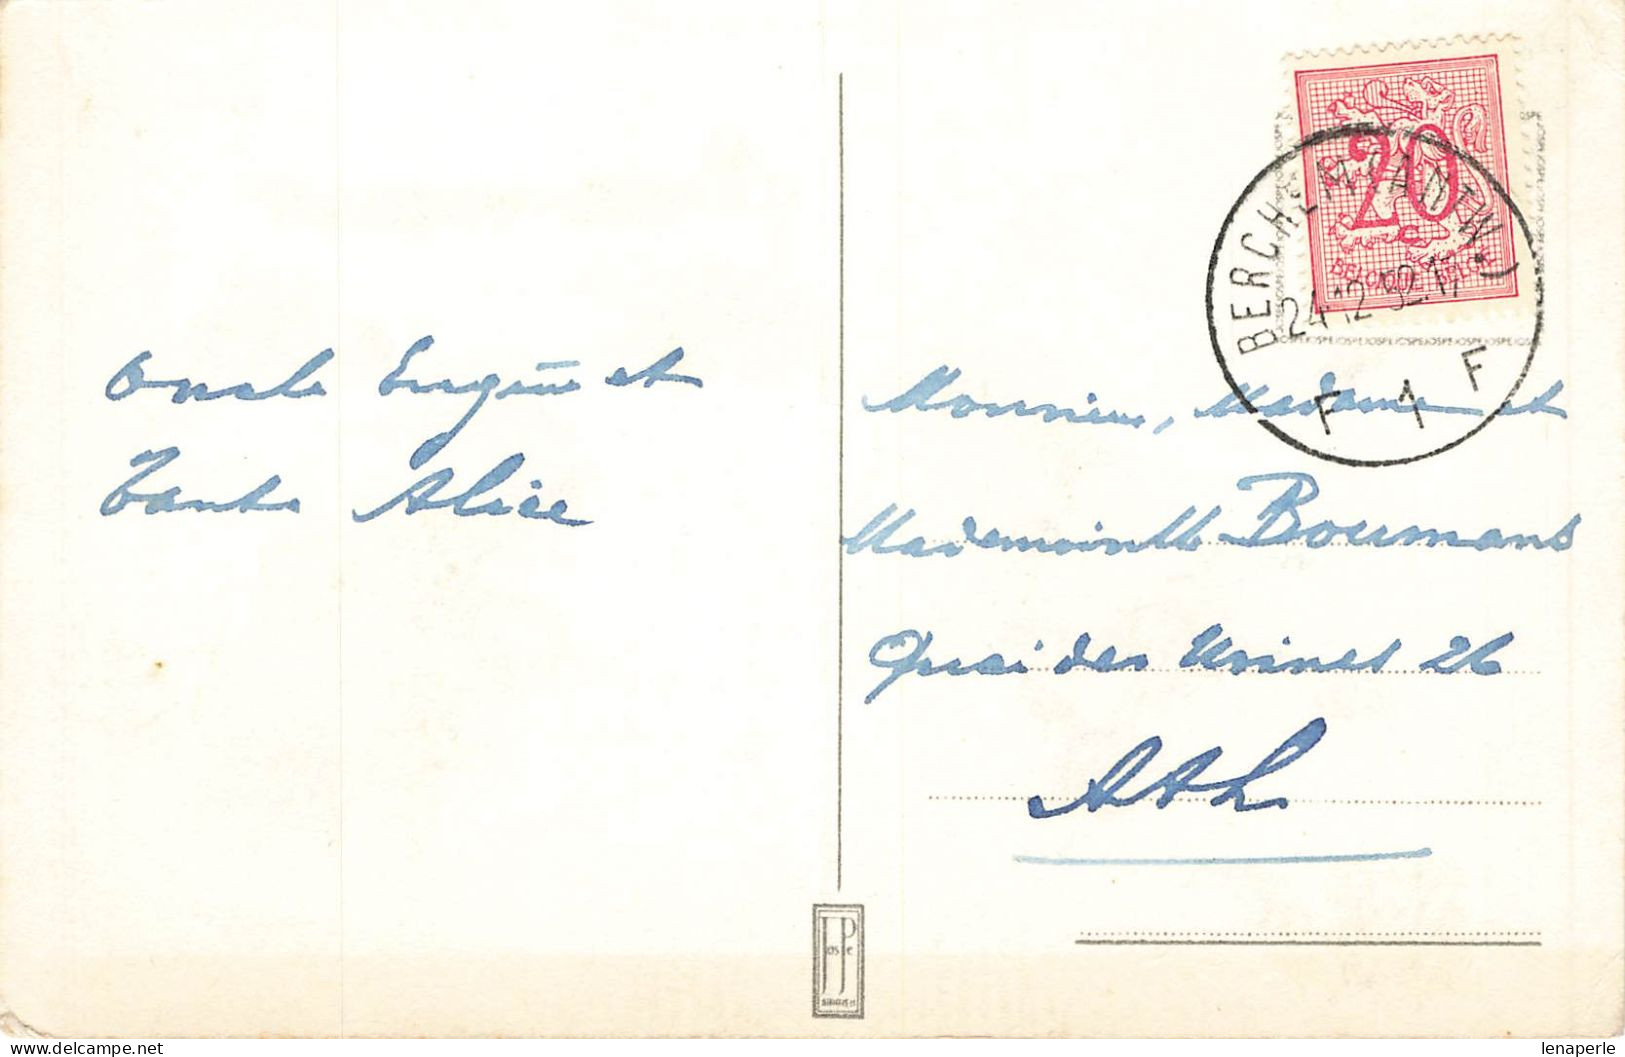 Oncle Eugène et
Tante Alice
20
C
BELGIQUE BELGIE
BERCHEM (ANTW.)
24.12.52.17
F 1 F
Monsieur, Madame et
Mademoiselle Boumans
Quai des Usines 26
Ath
JOSPE
lenaperle
www.delcampe.net